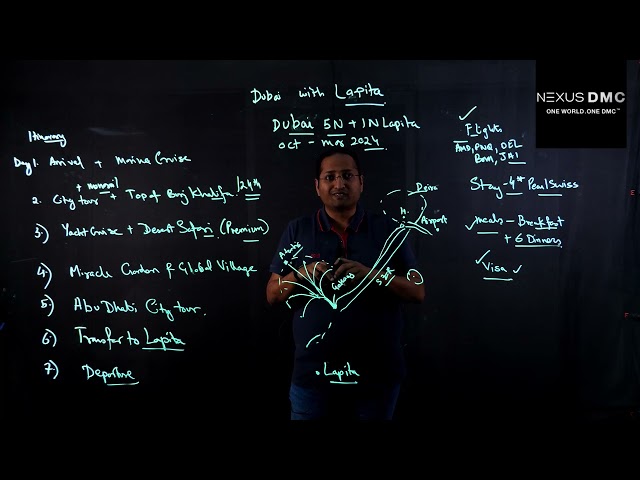 Dubai with Lapita
Dubai 5N + 1N Lapita
Oct - Mar 2024
Itinerary
Day 1. Arrival + Marina Cruise
+ monorail
2. City tour + Top of Burj Khalifa /124th
3) Yacht Cruise + Desert Safari (Premium)
4) Miracle Garden & Global Village
5. Abu Dhabi City tour.
6) Transfer to Lapita
7) Departure
Atlantis
Deira
H.
Airport
SZR
. Lapita
NEXUS DMC
ONE WORLD. ONE DMC™
Flights
AMD, PNQ, DEL
BOM, JAI
Stay - 4* Pearl Swiss
Meals - Breakfast
+ 6 Dinners
Visa